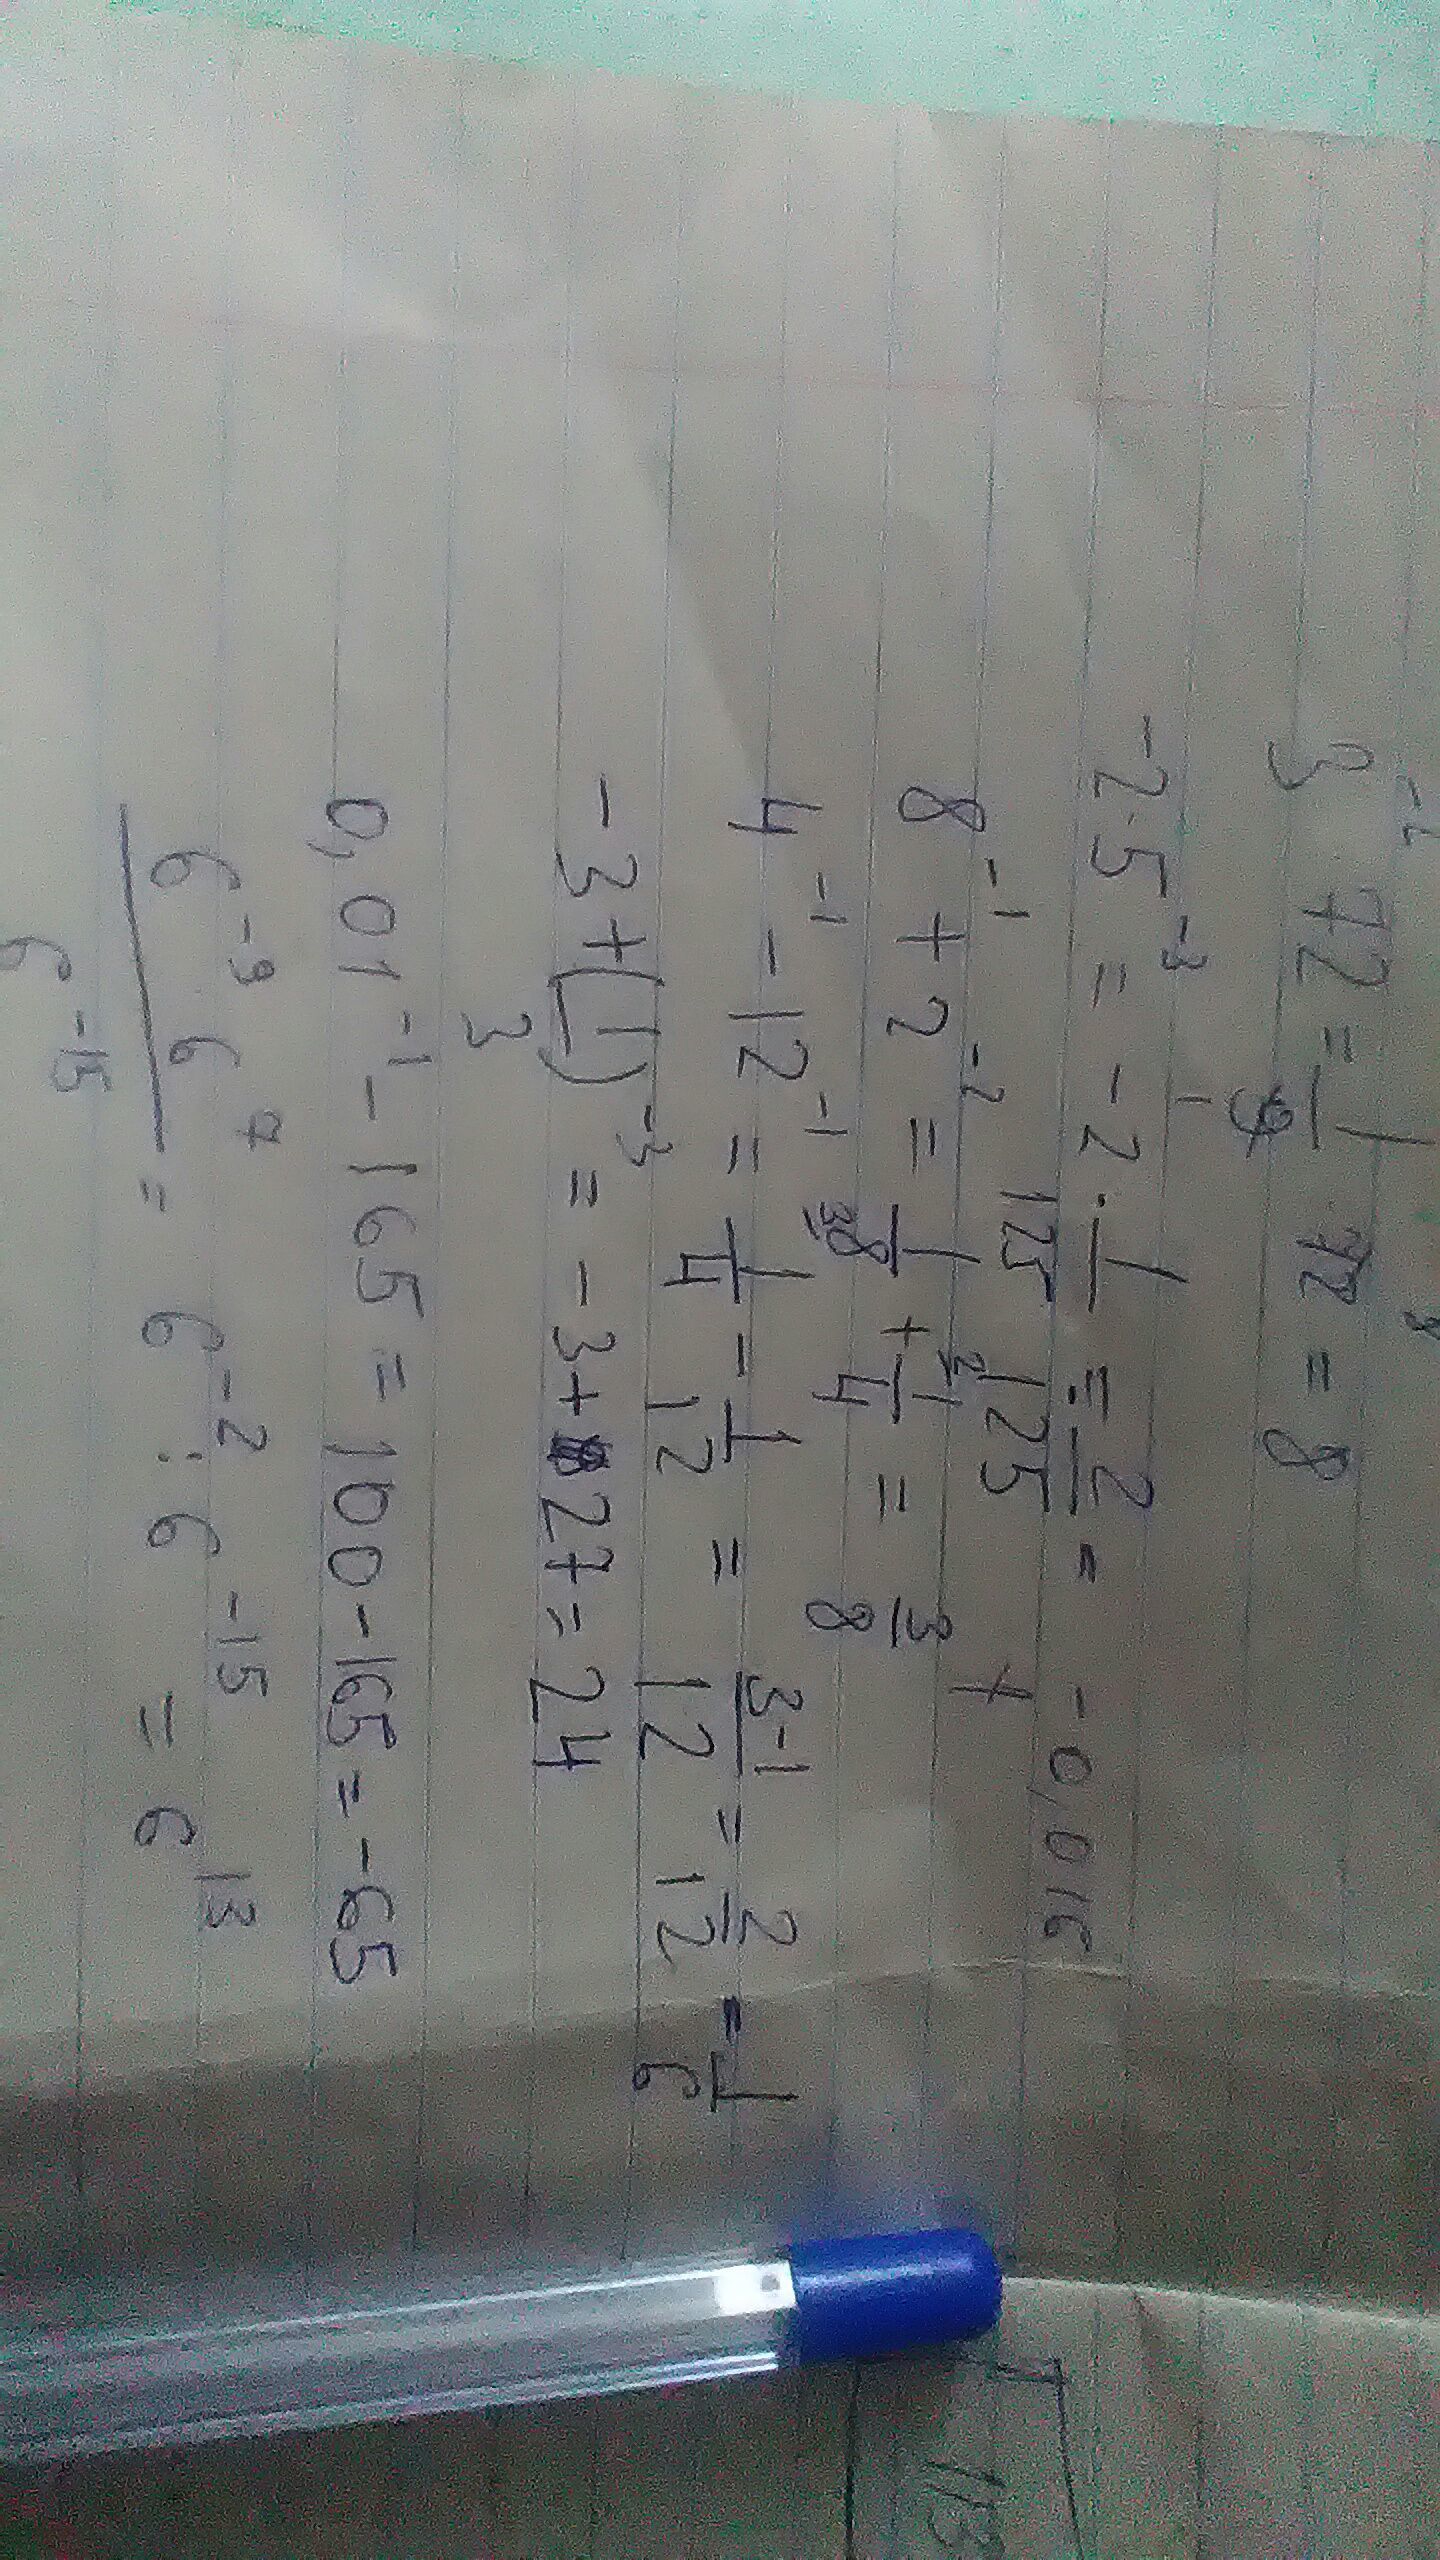 3⁻² 72 = 1/9 72 = 8
-2·5⁻³ = -2 · 1/125 = 2/125 = -0,016
8⁻¹ + 2⁻² = 1/8 + 1/4 = 3/8
4⁻¹ - 12⁻¹ = 1/4 - 1/12 = 3-1/12 = 2/12 = 1/6
-3+(1/3)⁻³ = -3+27=24
0,01⁻¹-165=100-165=-65
6⁻⁹ 6⁷/6⁻¹⁵ = 6⁻² : 6⁻¹⁵ = 6¹³